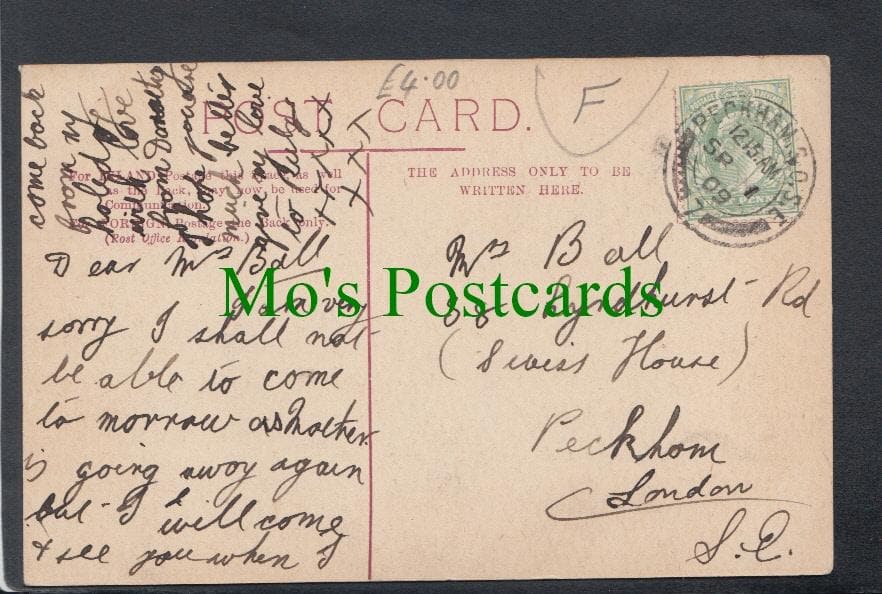 £4.00
F
POST CARD.
For INLAND Postage this Space, as well
as the Back, may now be used for
Communication.
For FOREIGN Postage the Back only.
(Post Office Regulation.)
THE ADDRESS ONLY TO BE
WRITTEN HERE.
PECKHAM S.O. S.E.
12.15 AM
SP 1
09
Dear Mrs Ball
I am very
sorry I shall not
be able to come
to morrow as Mother
is going away again
but I will come
& see you when I
come back
from my
holiday
with love
from Dorothy
I hope you are
much better
give my love
to
x x x x
x x x
Mrs Ball
88 Lyndhurst Rd
(Swiss House)
Peckham
London
S.E.
Mo's Postcards